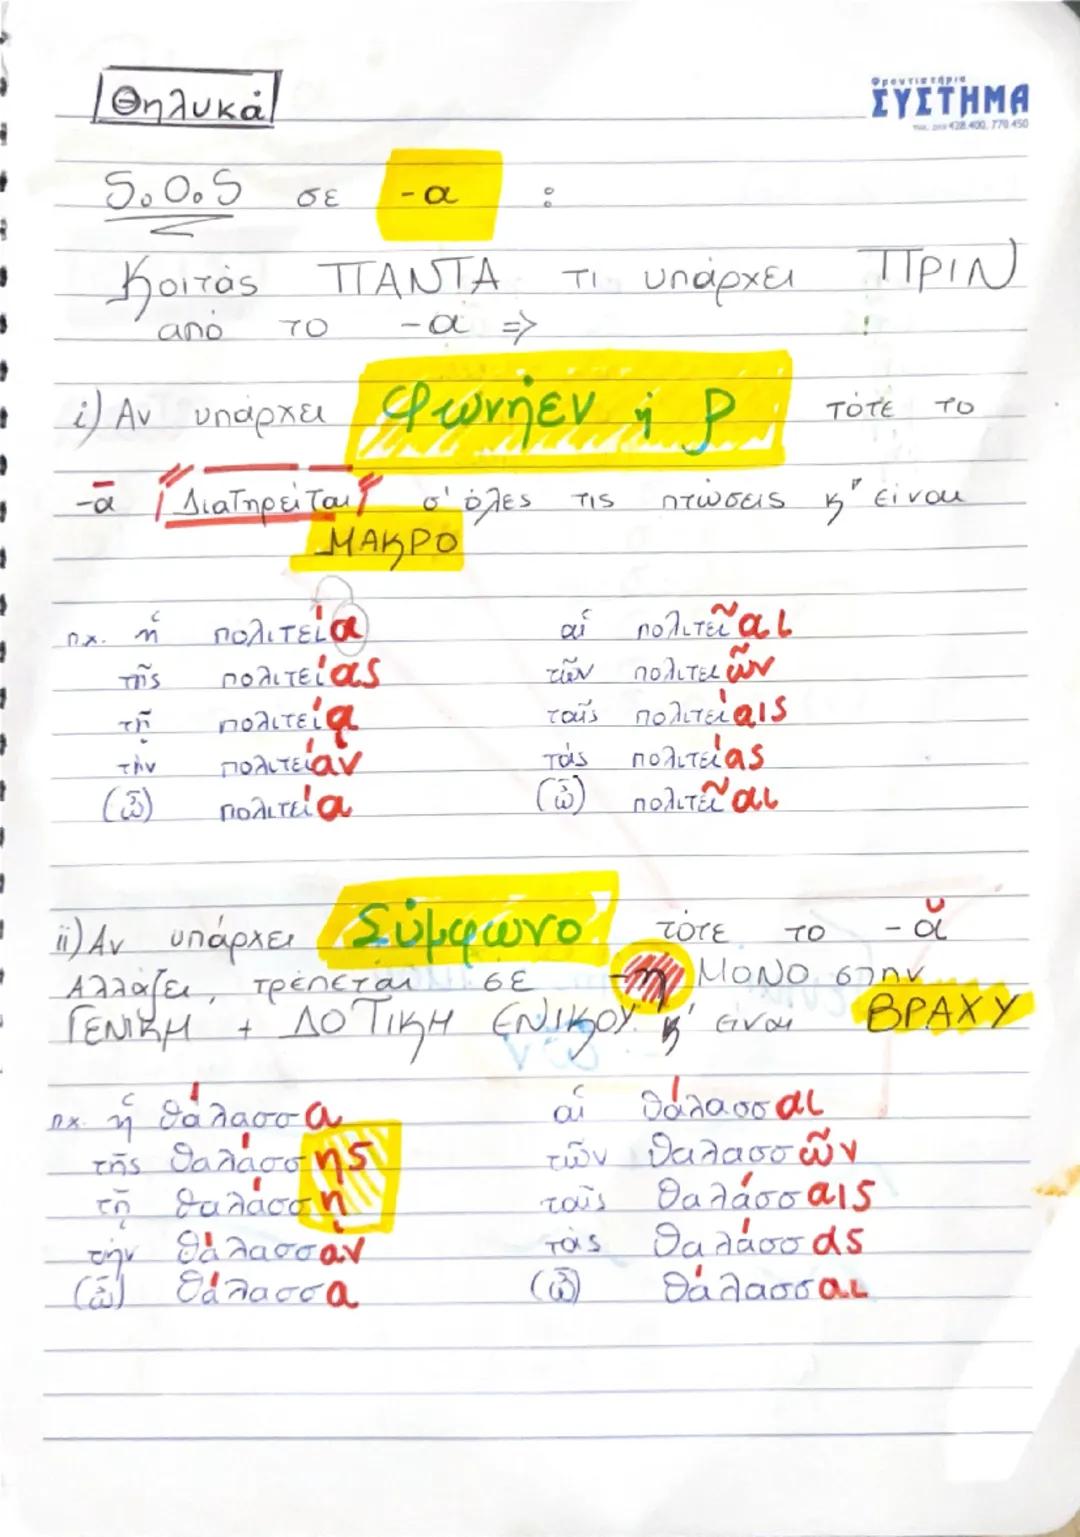 Θηλυκά
Φροντιστήρια
ΣΥΣΤΗΜΑ
428.400, 770.450
S.O.S σε -α :
Κοιτάς ΠΑΝΤΑ τι υπάρχει ΠΡΙΝ
από το -α => !
i) Αν υπάρχει Φωνήεν ή ρ τότε το
-ᾱ Διατηρείται σ' όλες τις πτώσεις κ' είναι
ΜΑΚΡΟ
π.χ. ἡ πολιτεία αἱ πολιτεῖαι
τῆς πολιτείας τῶν πολιτειῶν
τῇ πολιτείᾳ ταῖς πολιτείαις
τὴν πολιτείαν τὰς πολιτείας
(ὦ) πολιτεία (ὦ) πολιτεῖαι
ii) Αν υπάρχει Σύμφωνο τότε το -ᾰ
Αλλάζει, τρέπεται σε -η ΜΟΝΟ στην
ΓΕΝΙΚΗ + ΔΟΤΙΚΗ ΕΝΙΚΟΥ κ' είναι ΒΡΑΧΥ
π.χ. ἡ θάλασσα αἱ θάλασσαι
τῆς θαλάσσης τῶν θαλασσῶν
τῇ θαλάσσῃ ταῖς θαλάσσαις
τὴν θάλασσαν τὰς θαλάσσας
(ὦ) θάλασσα (ὦ) θάλασσαι